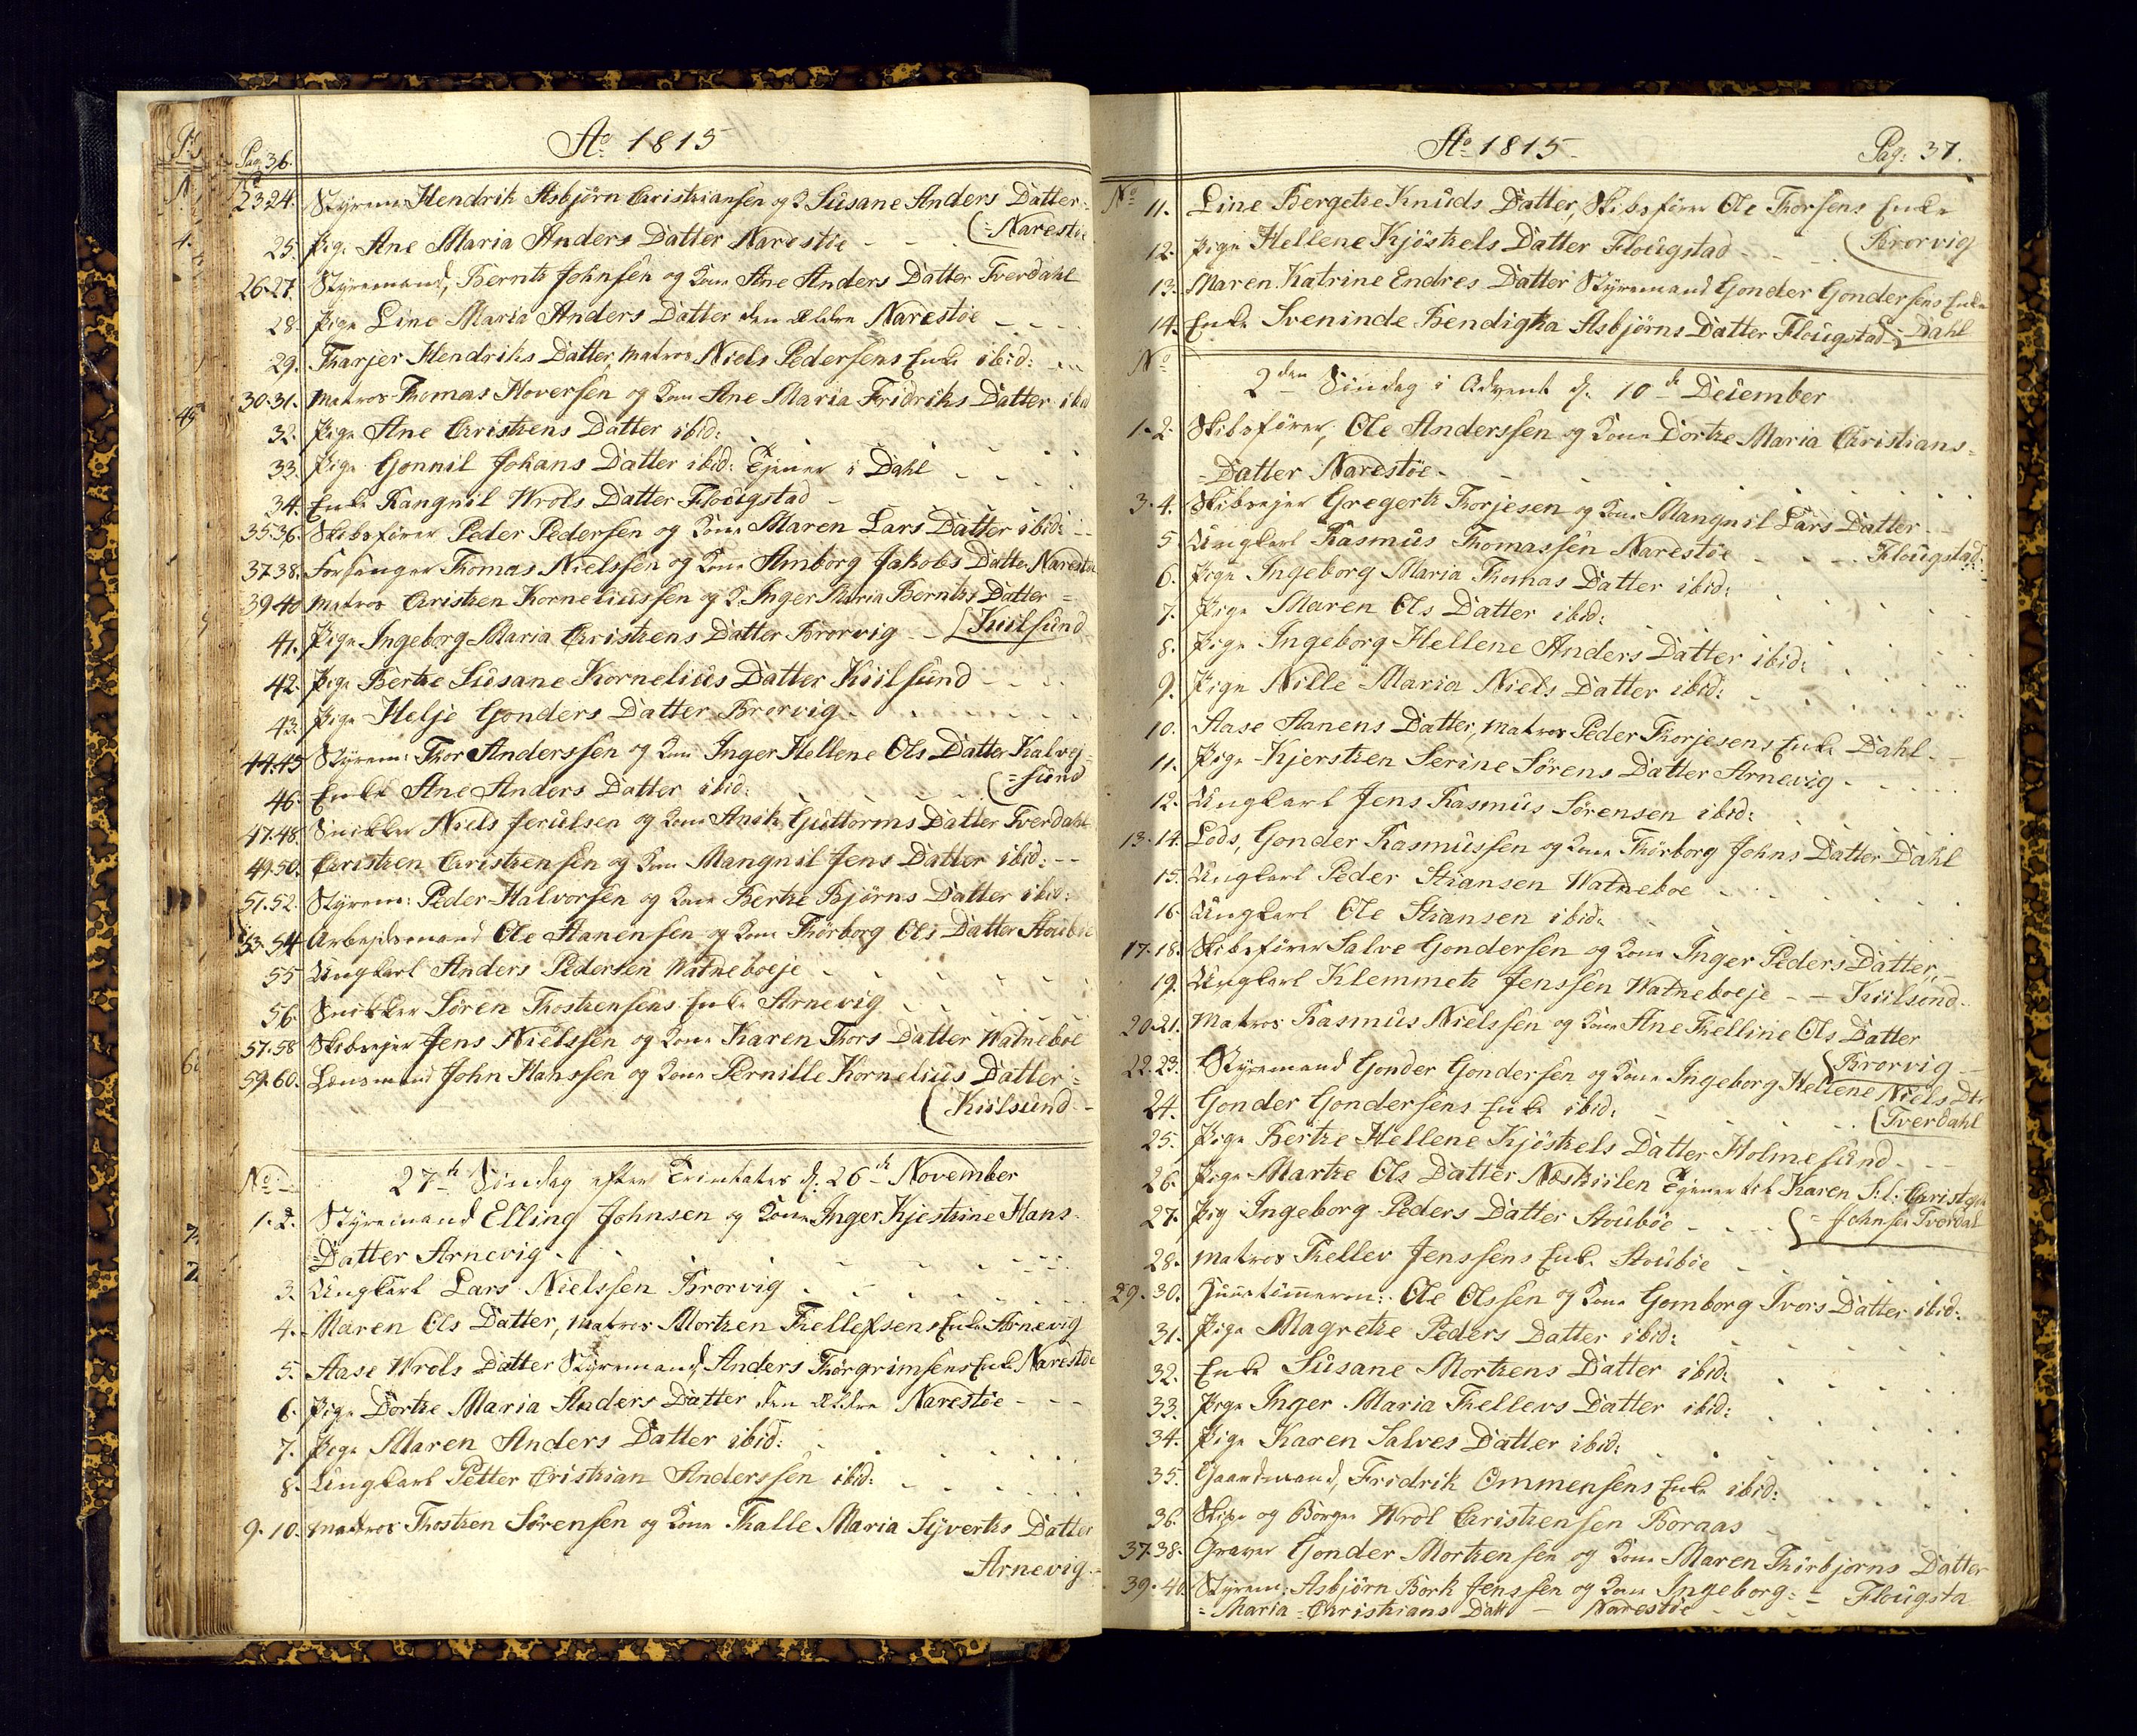 Ao 1815
Pag. 36.
No
23 24. Styrem: Hendrik Asbjørn Christiansen og K. Susane Anders Datter =
(= Narestøe
25. Pige Ane Maria Anders Datter Narestøe
26-27. Styremand, Berntz Johnsen og Kone Ane Anders Datter Tverdahl
28. Pige Line Maria Anders Datter den Ældre Narestøe
29. Tharjer Hendriks Datter, Matros Niels Pedersens Enke ibid:
30.31. Matros Thomas Hoversen og Kone Ane Maria Fridriks Datter ibid
32. Pige Ane Christens Datter ibid:
33. Pige Gonnil Johans Datter ibid: Tjener i Dahl
34. Enke Rangnil Wrols Datter Flougstad
35.36. Skibsfører Peder Pedersen og Kone Maren Lars Datter ibid:
37.38. Forsanger Thomas Nielssen og Kone Amborg Jakobs Datter Narestøe
39 40 Matros Christen Korneliussen og K. Inger Maria Berntz Datter =
41. Pige Ingeborg Maria Christens Datter Brorvig (Kiilsund
42. Pige Bertze Susane Kornelius Datter Kiilsund
43. Pige Helje Gonders Datter Brorvig
44.45 Styrem: Thor Anderssen og Kone Inger Hellene Ols Datter Kalvej-
(= sund
46. Enke Ane Anders Datter ibid:
47.48. Snikker Niels Jerulsen og Kone Anik Guttorms Datter Tverdahl
49.50. Christen Christensen og Kone Mangnil Jens Datter ibid:
51.52. Styrem: Peder Halvorsen og Kone Bertze Bjørns Datter ibid:
53.54 Arbejdsmand Ole Aanensen og Kone Thorborg Ols Datter Stoubøe
55 Ungkarl Anders Pedersen Watneboeje
56. Snikker Søren Thostensens Enke Arnevig
57.58 Skibsejer Jens Nielssen og Kone Karen Thors Datter Watneboe
59.60. Lensmand John Hanssen og Kone Pernille Kornelius Datter =
(Kiilsund
No 27de Søndag efter Trinitatis d: 26de November
1.2. Styremand Elling Johnsen og Kone Inger Kjestine Hans-
= Datter Arnevig
3. Ungkarl Lars Nielssen Brorvig
4. Maren Ols Datter, Matros Mortzen Thellefsens Enke Arnevig
5. Aase Wrols Datter Styremand, Anders Thorgrimsens Enke Narestøe
6. Pige Dortze Maria Anders Datter den Ældre Narestøe
7. Pige Maren Anders Datter ibid:
8. Ungkarl Petter Cristian Anderssen ibid:
9.10. Matros Thostzen Sørensen og Kone Thalle Maria Syvertz Datter
Arnevig
Ao 1815 Pag: 37.
No 11. Line Bergetze Knuds Datter, Skibsfører Ole Thorsens Enke
12. Pige Hellene Kjøstels Datter Flougstad (Brorvig
13. Maren Katrine Endres Datter Styremand Gonder Gondersens Enke
14. Enke Sveninde Bendigta Asbjørns Datter Flougstad (Dahl
No 2den Søndag i Advent d: 10de December
1.2 Skibsfører, Ole Anderssen og Kone Dortze Maria Christians-
= Datter Narestøe
3.4. Skibsejer Gregertz Thorjesen og Kone Mangnil Lars Datter
5 Ungkarl Rasmus Thomassen Narestøe Flougstad:
6. Pige Ingeborg Maria Thomas Datter ibid:
7. Pige Maren Ols Datter ibid:
8. Pige Ingeborg Hellene Anders Datter ibid:
9. Pige Nille Maria Niels Datter ibid:
10. Aase Aanens Datter, Matros Peder Thorjesens Enke Dahl
11. Pige Kjerstzen Serine Sørens Datter Arnevig
12. Ungkarl Jens Rasmus Sørensen ibid:
13.14. Lods, Gonder Rasmussen og Kone Thorborg Johns Datter Dahl
15. Ungkarl Peder Stiansen Watneboe
16. Ungkarl Ole Stiansen ibid:
17.18. Skibsfører Salve Gondersen og Kone Inger Peders Datter,
19. Ungkarl Klemmetz Jenssen Watneboeje - Kiilsund
20.21. Matros Rasmus Nielssen og Kone Ane Thelline Ols Datter
(Brorvig
22.23. Styremand Gonder Gondersen og Kone Ingeborg Hellene Niels Dtr
24. Gonder Gondersens Enke ibid: (Tverdahl
25. Pige Bertze Hellene Kjøstels Datter Holmesund
26. Pige Martze Ols Datter Næskiilen Tjener til Karen Sl: Christen
27. Pig Ingeborg Peders Datter Stoubøe (= Johnsen Tverdal
28. Matros Thellev Jenssens Enke Stoubøe
29.30. Huustømrem: Ole Olssen og Kone Gomborg Ivors Datter ibid:
31. Pige Magretze Peders Datter ibid:
32. Enke Susane Mortzens Datter ibid:
33. Pige Inger Maria Thellevs Datter ibid:
34. Pige Karen Salves Datter ibid:
35. Gaardmand, Fridrik Ommensens Enke ibid:
36. Skipr og Borger Wrol Christensen Boraas
37.38. Graver Gonder Mortzensen og Kone Maren Thorbjørns Datter
39.40. Styrem: Asbjørn Bork Jenssen og Kone Ingeborg = Flougsta
= Maria = Christians Datt - Narestøe